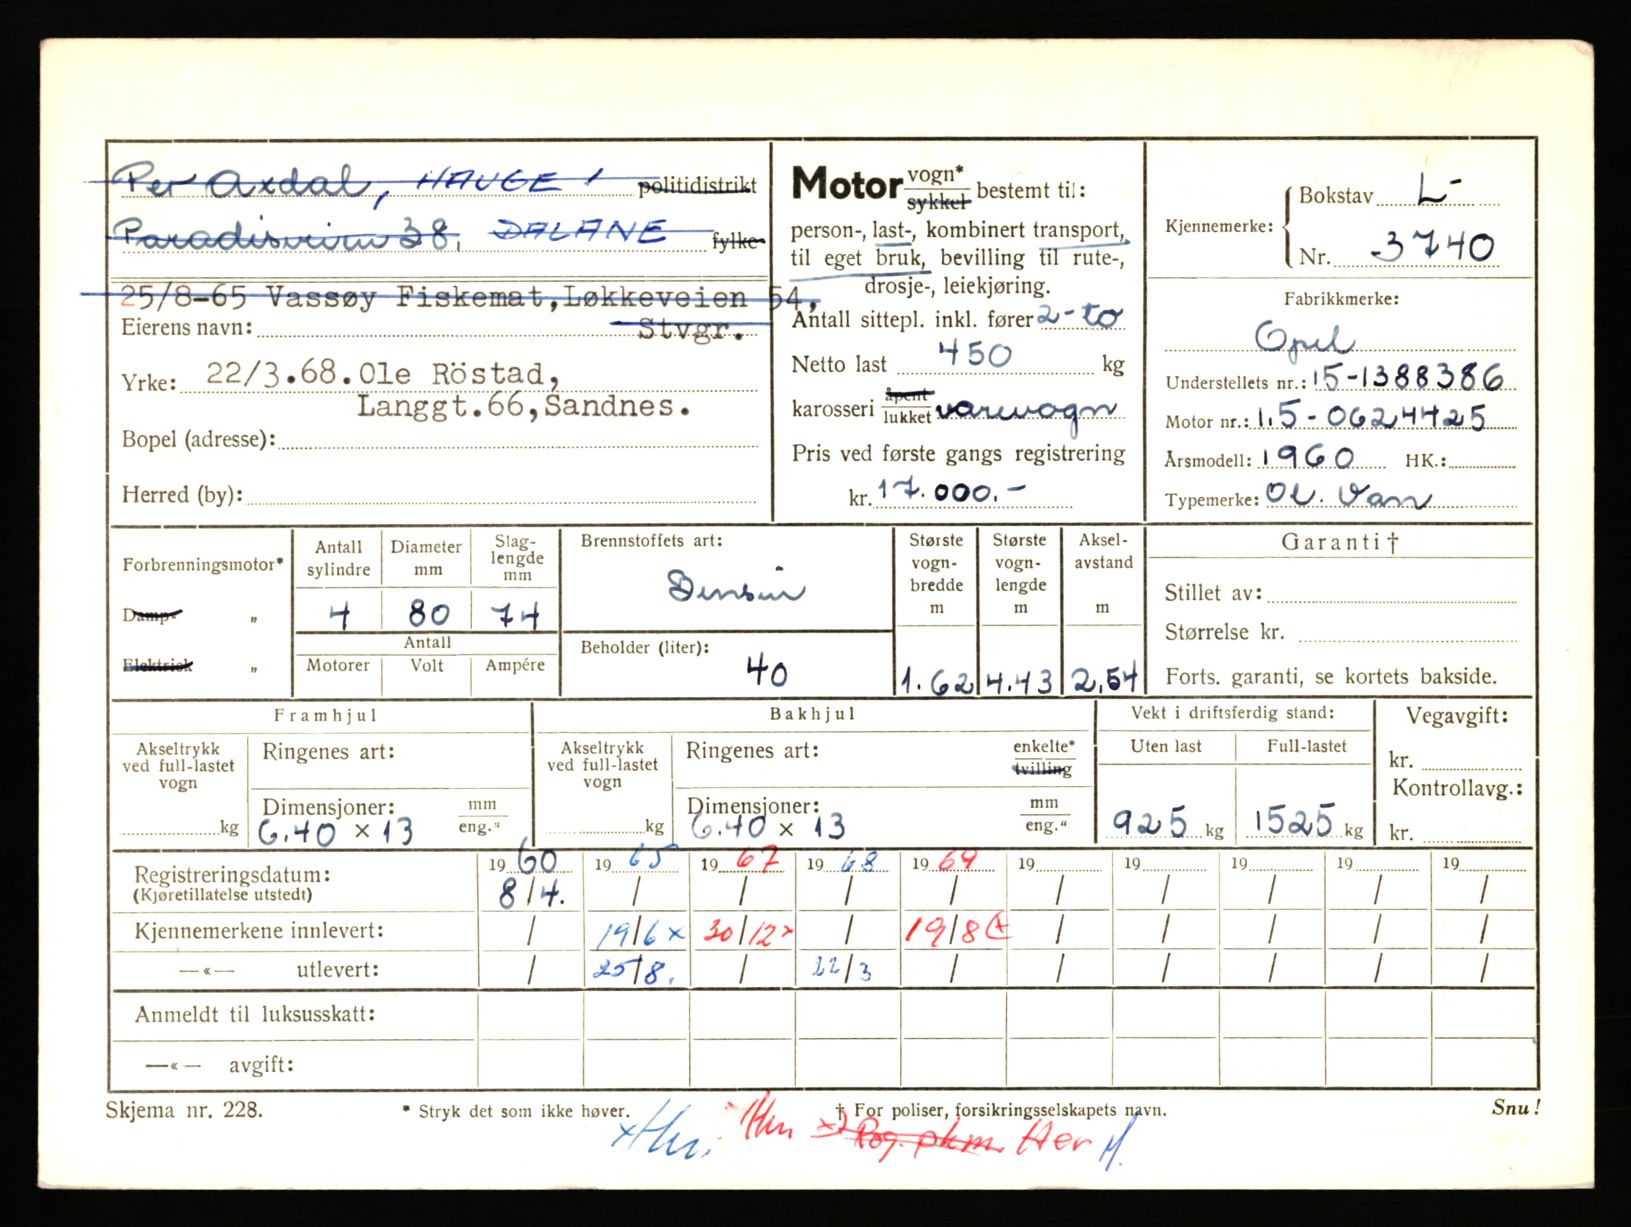 Per Axdal, HAUGE I politidistrikt
Paradisveien 38, DALANE fylke
25/8-65 Vassøy Fiskemat, Løkkeveien 54,
Eierens navn: Stvgr.
Yrke: 22/3.68. Ole Röstad,
Langgt.66, Sandnes.
Bopel (adresse):
Herred (by):
Motor vogn* sykkel bestemt til:
person-, last-, kombinert transport,
til eget bruk, bevilling til rute-,
drosje-, leiekjøring.
Antall sittepl. inkl. fører 2-to
Netto last 450 kg
karosseri åpent lukket varevogn
Pris ved første gangs registrering
kr. 17.000.-
Kjennemerke: Bokstav L-
Nr. 3740
Fabrikkmerke:
Opel
Understellets nr.: 15-1388386
Motor nr.: 1.5-0624425
Årsmodell: 1960 HK.:
Typemerke: Ol. Van
Forbrenningsmotor*
Damp- "
Elektrisk "
Antall sylindre Diameter mm Slaglengde mm
4 80 74
Antall
Motorer Volt Ampére
Brennstoffets art:
Bensin
Beholder (liter):
40
Største vognbredde m Største vognlengde m Akselavstand m
1.62 4.43 2.54
Garanti †
Stillet av:
Størrelse kr.
Forts. garanti, se kortets bakside.
Framhjul
Akseltrykk ved full-lastet vogn kg
Ringenes art:
Dimensjoner: mm eng."
6.40 x 13
Bakhjul
Akseltrykk ved full-lastet vogn kg
Ringenes art: enkelte* tvilling
Dimensjoner: mm eng."
6.40 x 13
Vekt i driftsferdig stand:
Uten last Full-lastet
925 kg 1525 kg
Vegavgift:
kr.
Kontrollavg.:
kr.
19 60 19 65 19 67 19 68 19 69 19 19 19 19 19
Registreringsdatum: 8/4. / / / / / / / / /
(Kjøretillatelse utstedt)
Kjennemerkene innlevert: / 19/6 x 30/12 x / 19/8 / / / / /
—«— utlevert: / 25/8. / 22/3 / / / / / /
Anmeldt til luksusskatt:
—«— avgift:
Skjema nr. 228. * Stryk det som ikke høver. † For poliser, forsikringsselskapets navn. Snu!